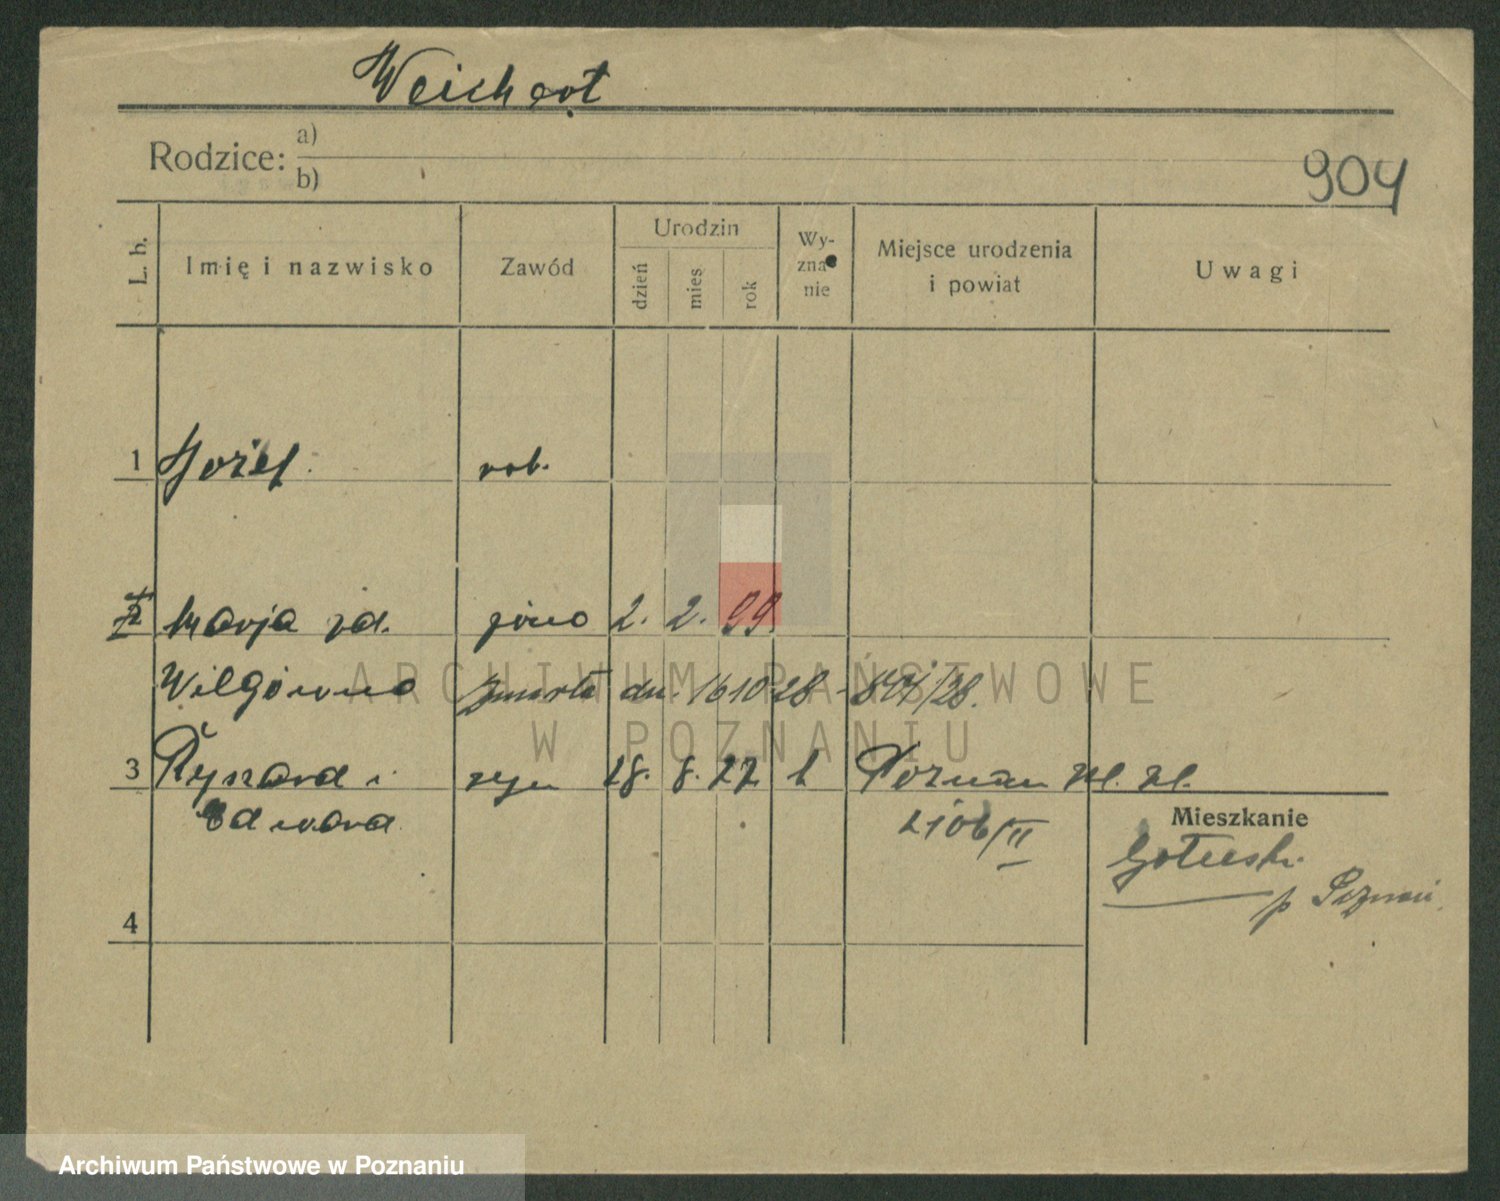 Weichert
Rodzice: a)
b)
904
L. b.
Imię i nazwisko
Zawód
Urodzin
dzień
mies
rok
Wy-
zna-
nie
Miejsce urodzenia
i powiat
Uwagi
1 Józef. rob.
2 Marja zd. żona 2. 2. 99.
Wilgówna zmarła dn. 16 10 28 - 807/28.
3 Ryszard i syn 18. 8. 27. k Poznań
Edward
Mieszkanie
p Poznań.
4
ARCHIWUM PAŃSTWOWE
W POZNANIU
Archiwum Państwowe w Poznaniu